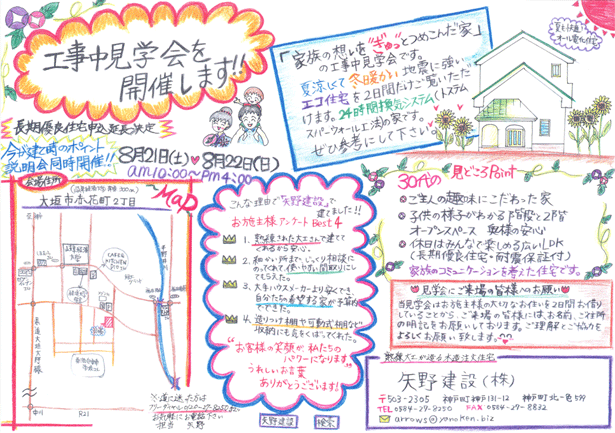 工事中見学会を
開催します!!
長期優良住宅申込延長決定
今が建て時のポイント
説明会同時開催!!
8月21日(土)♥8月22日(日)
am10:00~Pm4:00
「家族の想いをぎゅっとつめこんだ家」
の工事中見学会です。
夏涼しくて冬暖かい地震に強い
エコ住宅を2日間だけご覧いただ
けます。24時間換気システム(トステム
スーパーウォール工法)の家です。
ぜひ参考にして下さい。
オール電化住宅
会場住所
大垣市浅花町2丁目
MaP
R21
こんな理由で「矢野建設」で
建てました!!
お施主様アンケートBest4
1. 熟練された大工さんで建てて
くれるから安心。
2. 細かい所までじっくり相談に
のってくれて、使いやすい間取りにし
てもらえた。
3. 大手ハウスメーカーより安くでき、
自分たちの希望する家が予算内で
できた。
4. 造りつけ棚や可動式棚など
収納にも気をくばってくれた。
"お客様の笑顔が私たちの
パワーになります"
うれしいお言葉
ありがとうございます!
矢野建設 検索
※道に迷った方は
お気軽にお電話下さい
担当 矢野
30代の見どころPoint
ご主人の趣味にこだわった家
子供の様子がわかる1階段と2階
オープンスペース 奥様の安心
休日はみんなで楽しめる広いLDK
(長期優良住宅・耐震保証付)
家族のコミュニケーションを考えた住宅です。
見学会にご来場の皆様へお願い
当見学会はお施主様の大切なお住いを2日間お借り
していることから、ご来場の皆様には、お名前、ご住所
の明記をお願いしております。ご理解とご協力を
よろしくお願い致します。
熟練大工が造る木造注文住宅
矢野建設(株)
〒503-2305 神戸町神戸131-12 神戸町北一色599
TEL 0584-27-8250 FAX 0584-27-8832
arrows@yanoken.biz